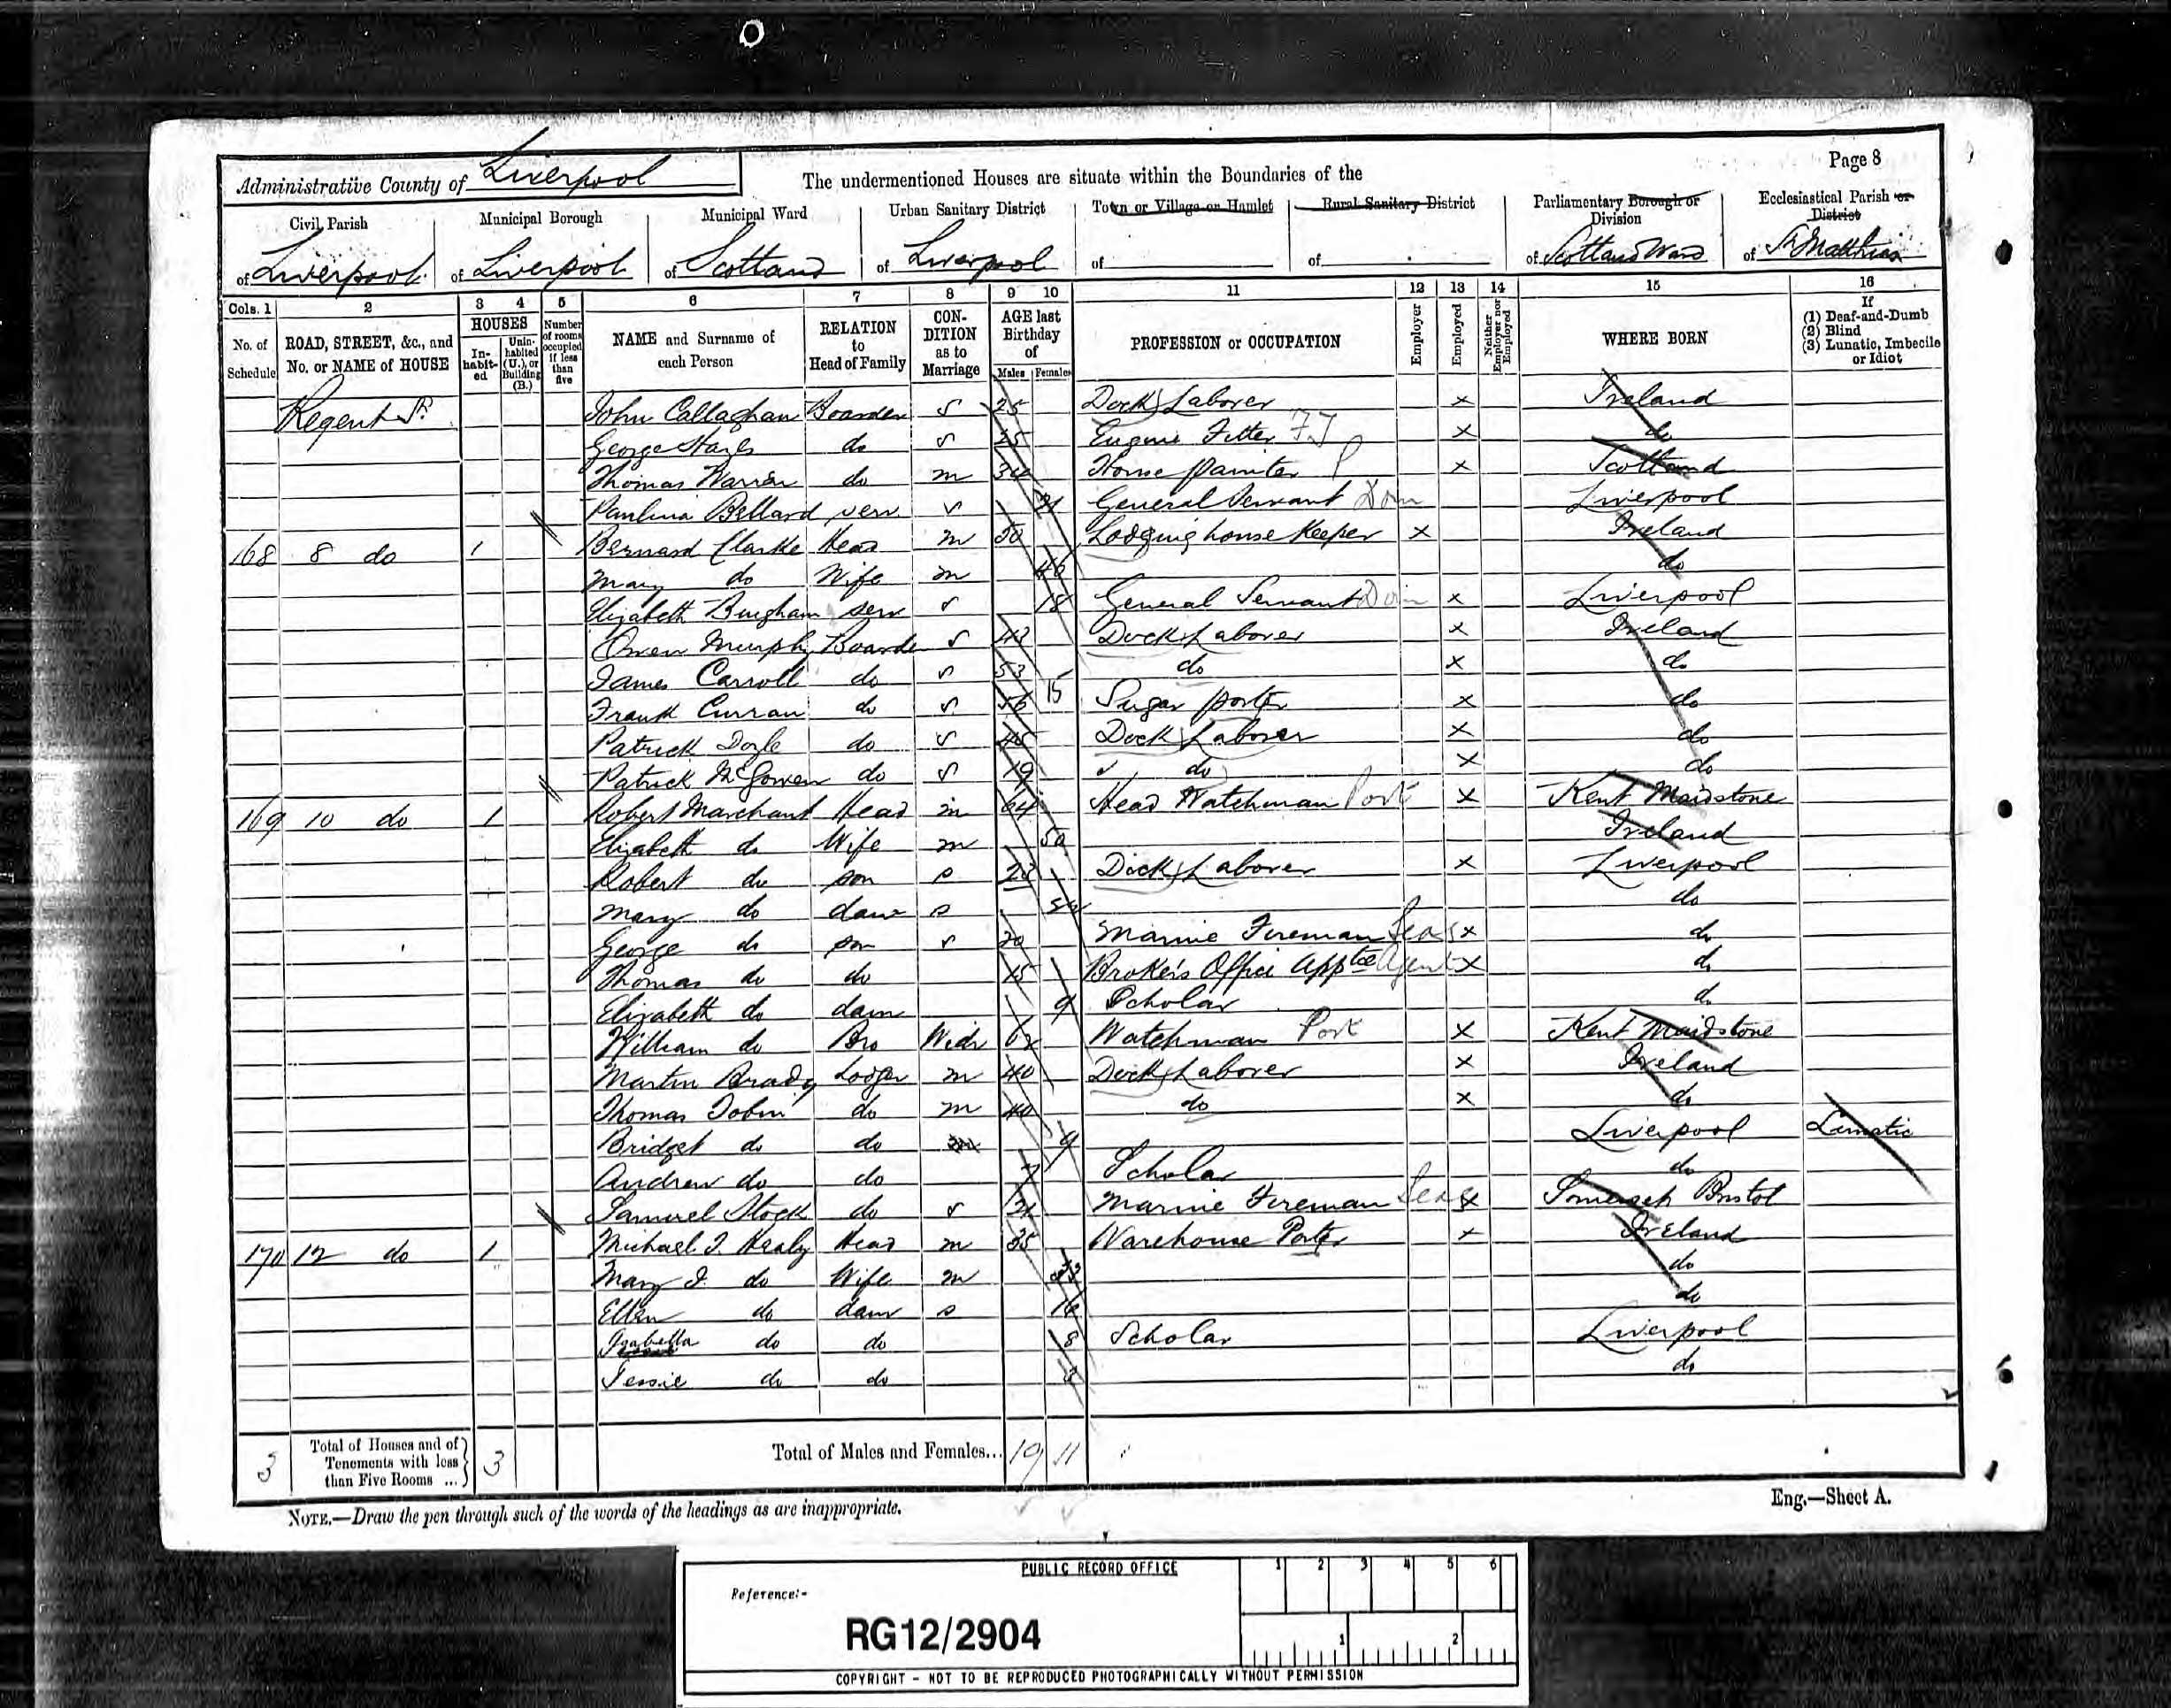 Page 8
Administrative County of Liverpool
The undermentioned Houses are situate within the Boundaries of the
Civil Parish of Liverpool
Municipal Borough of Liverpool
Municipal Ward of Scotland
Urban Sanitary District of Liverpool
Town or Village or Hamlet of
Rural Sanitary District of
Parliamentary Borough or Division of Scotland Ward
Ecclesiastical Parish or District of St Matthias
Cols. 1 2 3 4 5 6 7 8 9 10 11 12 13 14 15 16
No. of Schedule
ROAD, STREET, &c., and No. or NAME of HOUSE
HOUSES
In-habit-ed
Unin-habited (U.), or Building (B.)
Number of rooms occupied if less than five
NAME and Surname of each Person
RELATION to Head of Family
CON-DITION as to Marriage
AGE last Birthday of
Males Females
PROFESSION or OCCUPATION
Employer
Employed
Neither Employer nor Employed
WHERE BORN
If (1) Deaf-and-Dumb (2) Blind (3) Lunatic, Imbecile or Idiot
Regent St John Callaghan Boarder S 25 Dock Laborer x Ireland
George Hayes do S 25 Engine Fitter x do
Thomas Warren do m 34 House painter x Scotland
Paulina Bellard serv S 21 General Servant Dom Liverpool
168 8 do 1 Bernard Clarke Head m 50 Lodging house Keeper x Ireland
Mary do Wife m 46 do
Elizabeth Bingham serv S 18 General Servant Dom x Liverpool
Owen Murphy Boarder S 43 Dock Laborer x Ireland
James Carroll do S 53 do x do
Frank Curran do S 56 15 Sugar porter x do
Patrick Doyle do S 45 Dock Laborer x do
Patrick McGowen do S 19 do x do
169 10 do 1 Robert Marchant Head m 64 Head Watchman Port x Kent Maidstone
Elizabeth do Wife m 50 Ireland
Robert do son s 23 Dock Laborer x Liverpool
Mary do daur s do
George do son s 20 Marine Fireman Seas x do
Thomas do do 15 Broker's Office Apptce Agent x do
Elizabeth do daur 9 Scholar do
William do Bro Widr 62 Watchman Port x Kent Maidstone
Martin Brady Lodger m 40 Dock Laborer x Ireland
Thomas Tobin do m 40 do x do
Bridget do do m 9 Liverpool Lunatic
Andrew do do 7 Scholar do
Samuel Stock do S 21 Marine Fireman Seas x Somerset Bristol
170 12 do 1 Michael J. Healy Head m 35 Warehouse Porter x Ireland
Mary J. do Wife m 33 do
Ellen do daur s 16 do
Isabella do do 8 Scholar Liverpool
Jessie do do 3 do
3 Total of Houses and of Tenements with less than Five Rooms ... 3
Total of Males and Females... 19 11
NOTE.—Draw the pen through such of the words of the headings as are inappropriate.
Eng.—Sheet A.
PUBLIC RECORD OFFICE
1 2 3 4 5 6
Reference:-
RG12/2904
1 2
COPYRIGHT - NOT TO BE REPRODUCED PHOTOGRAPHICALLY WITHOUT PERMISSION